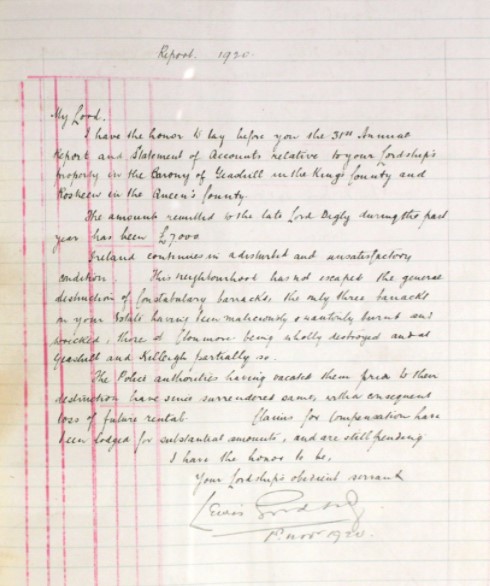 Report. 1920.
My Lord,
I have the honor to lay before you the 31st Annual
Report and Statement of Accounts relative to your Lordship's
property in the Barony of Geashill in the King's County and
in the Queen's County.
The amount remitted to the late Lord Digby during the past
year has been £7,000
Ireland continues in a disturbed and unsatisfactory
condition. This neighbourhood has not escaped the general
destruction of Constabulary barracks, the only three barracks
on your Estate having been maliciously & wantonly burnt and
wrecked, those at Clonmore being wholly destroyed and at
Geashill and Killeigh partially so.
The Police authorities having vacated them prior to their
destruction have since surrendered same, with a consequent
loss of future rental. Claims for compensation have
been lodged for substantial amounts, and are still pending
I have the honor to be,
Your Lordship's obedient servant
Lewis Goodbody
1st Novr 1920.